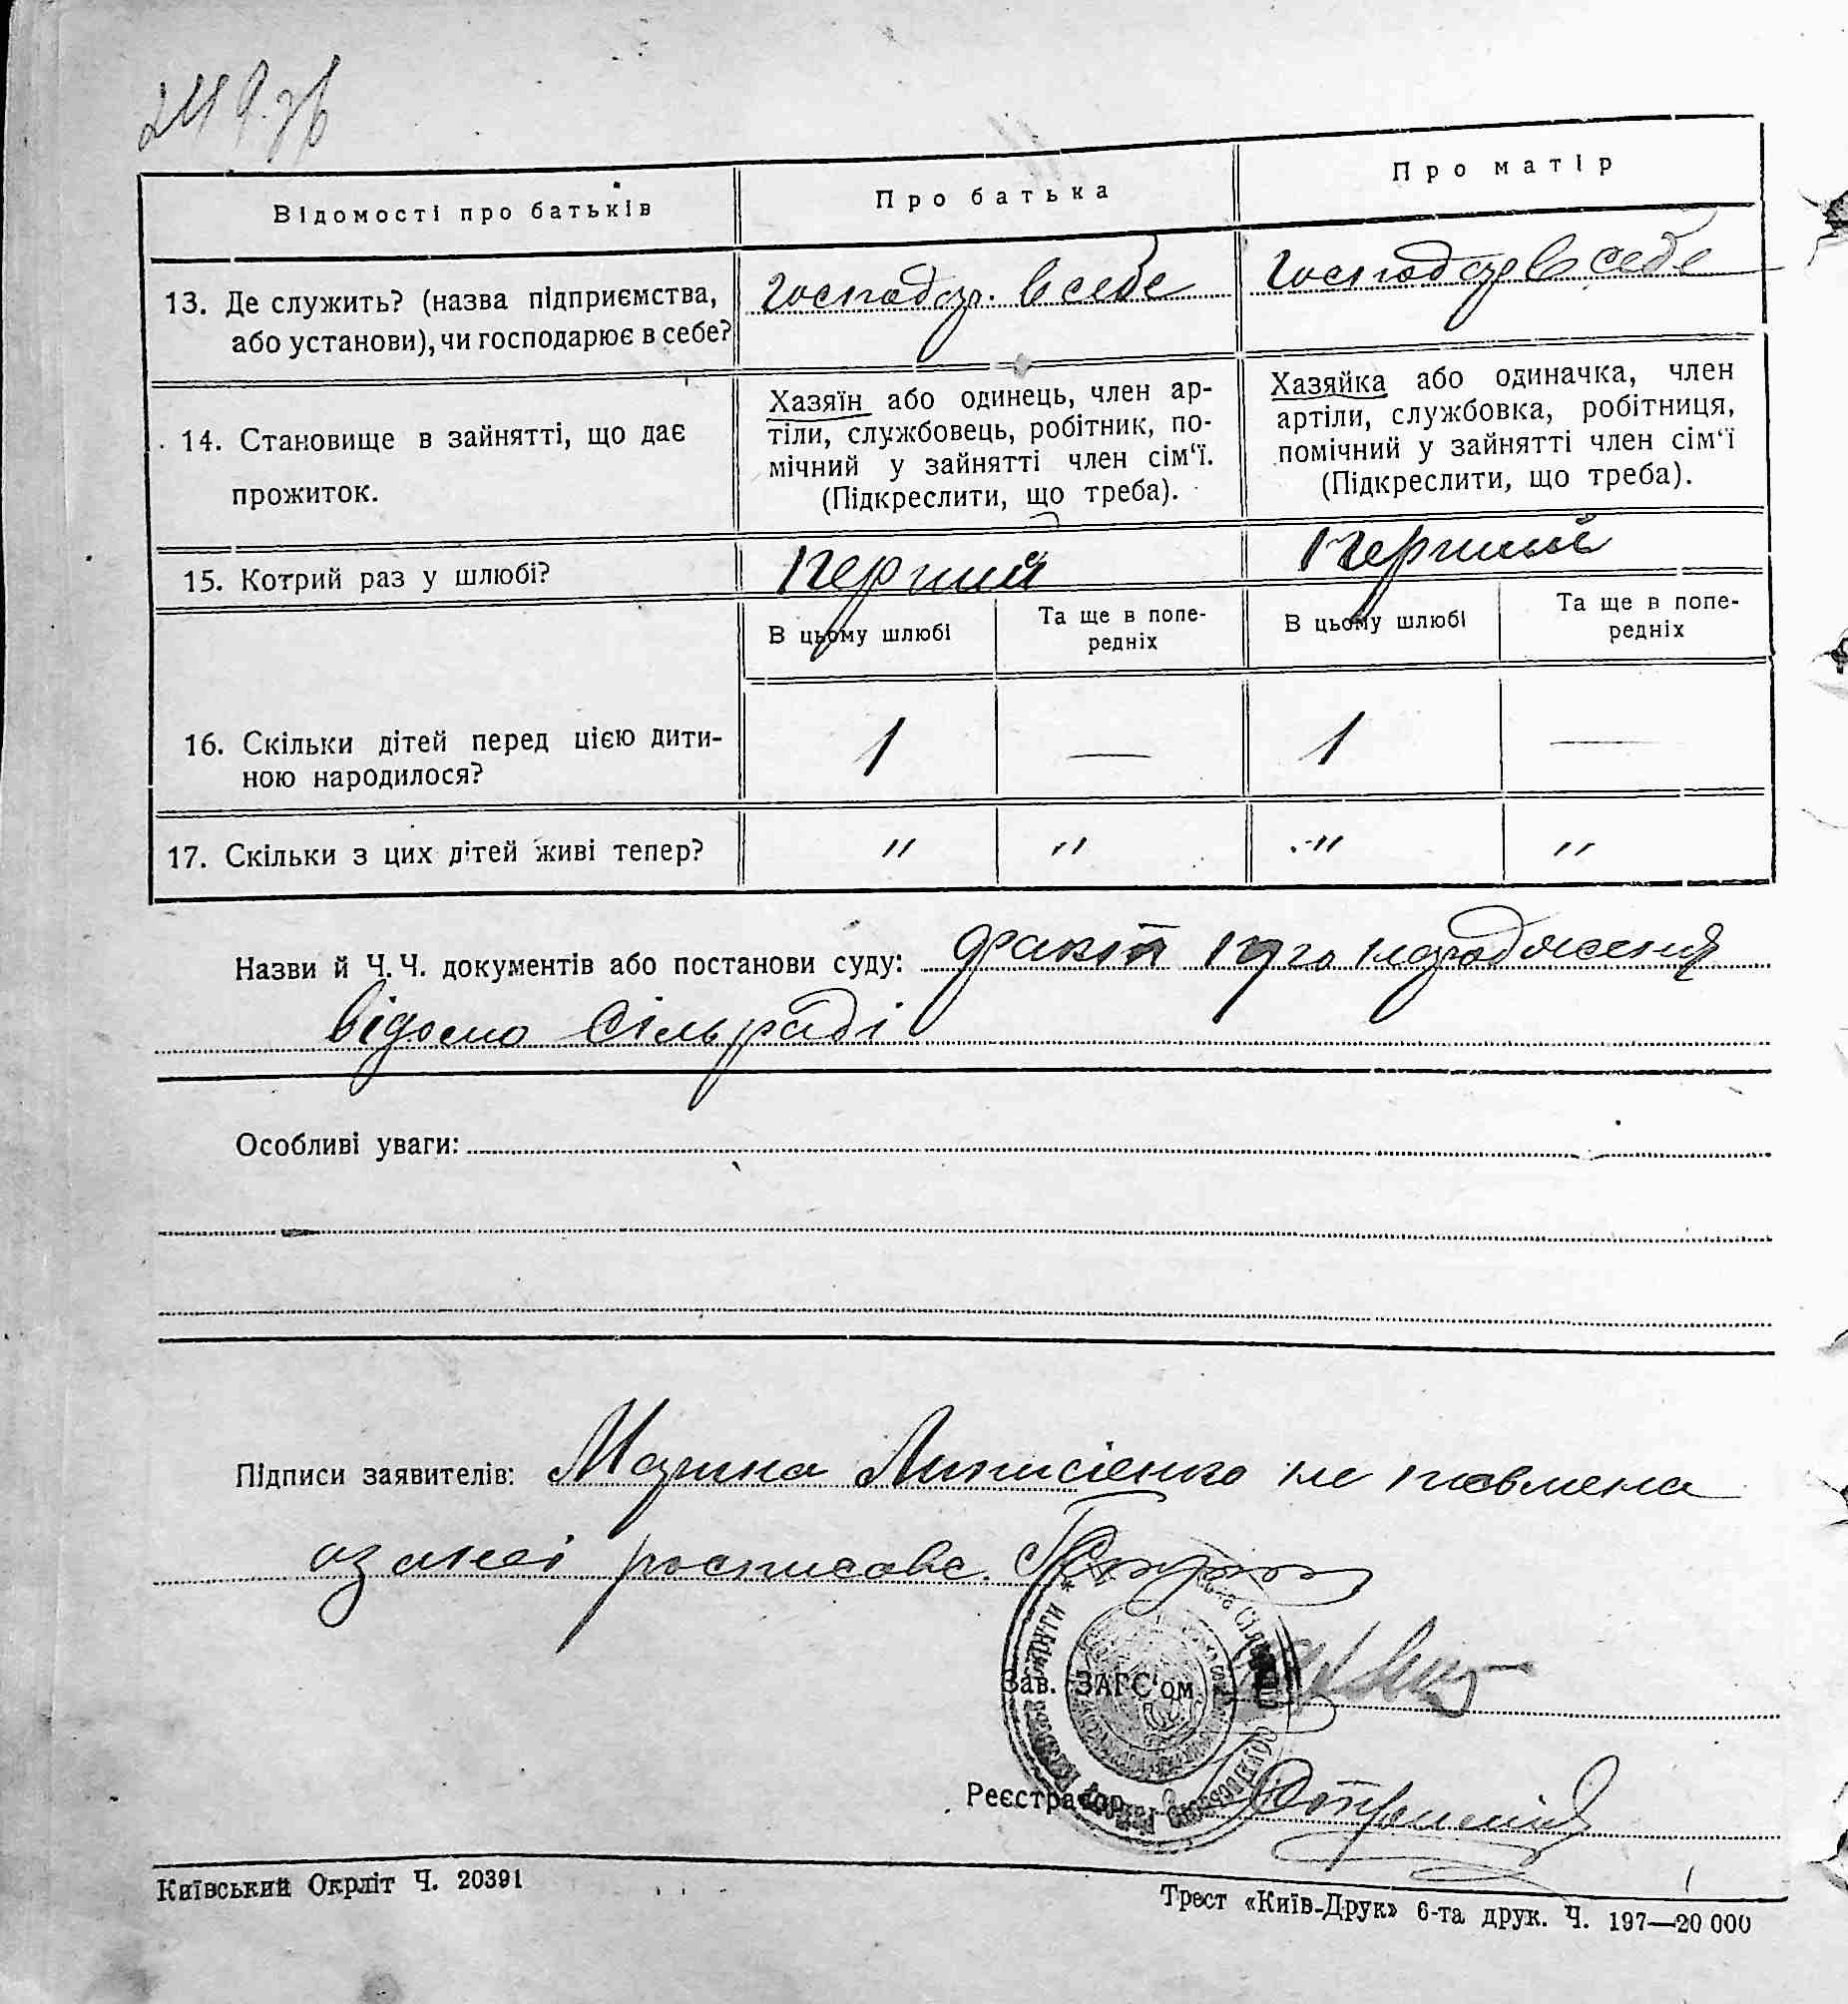 249 зв
Відомості про батьків
Про батька
Про матір
13. Де служить? (назва підприємства,
або установи), чи господарює в себе?
господар. в себе
господар в себе
14. Становище в зайнятті, що дає
прожиток.
Хазяїн або одинець, член ар-
тіли, службовець, робітник, по-
мічний у зайнятті член сім'ї.
(Підкреслити, що треба).
Хазяйка або одиначка, член
артіли, службовка, робітниця,
помічний у зайнятті член сім'ї
(Підкреслити, що треба).
15. Котрий раз у шлюбі?
перший
перший
В цьому шлюбі
Та ще в попе-
редніх
В цьому шлюбі
Та ще в попе-
редніх
16. Скільки дітей перед цією дити-
ною народилося?
1 — 1 —
17. Скільки з цих дітей живі тепер?
" " " "
Назви й Ч. Ч. документів або постанови суду: факт народження
відомо Сільраді
Особливі уваги:
Підписи заявителів: не
росписавс.
Зав. ЗАГС'ом
Реєстратор
Київський Окрліт Ч. 20391
Трест «Київ-Друк» 6-та друк. Ч. 197—20 000